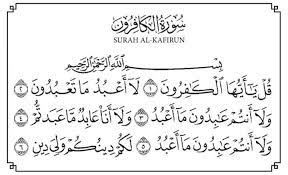 سُورَةُ الكَافِرُون
SURAH AL-KAFIRUN
بِسْمِ اللَّهِ الرَّحْمَٰنِ الرَّحِيمِ
قُلْ يَٰٓأَيُّهَا ٱلْكَٰفِرُونَ ١ لَآ أَعْبُدُ مَا تَعْبُدُونَ ٢
وَلَآ أَنتُمْ عَٰبِدُونَ مَآ أَعْبُدُ ٣ وَلَآ أَنَا۠ عَابِدٌ مَّا عَبَدتُّمْ ٤
وَلَآ أَنتُمْ عَٰبِدُونَ مَآ أَعْبُدُ ٥ لَكُمْ دِينُكُمْ وَلِىَ دِينِ ٦